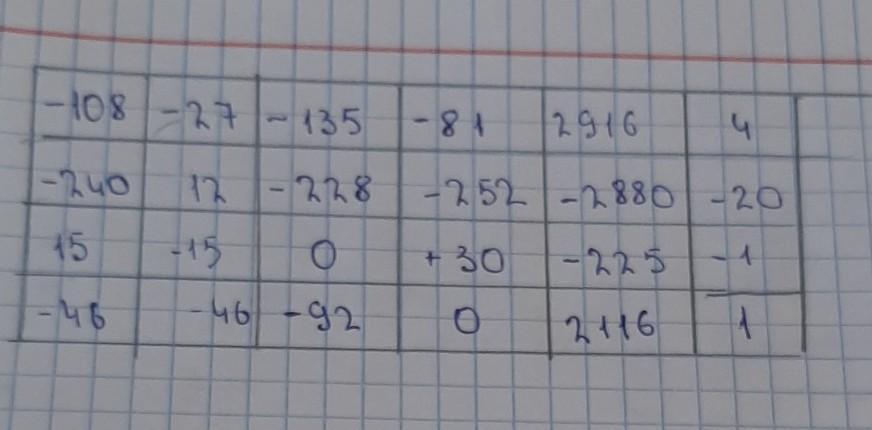 -108 -27 -135 -81 2916 4
-240 12 -228 -252 -2880 -20
15 -15 0 +30 -225 -1
-46 -46 -92 0 2116 1